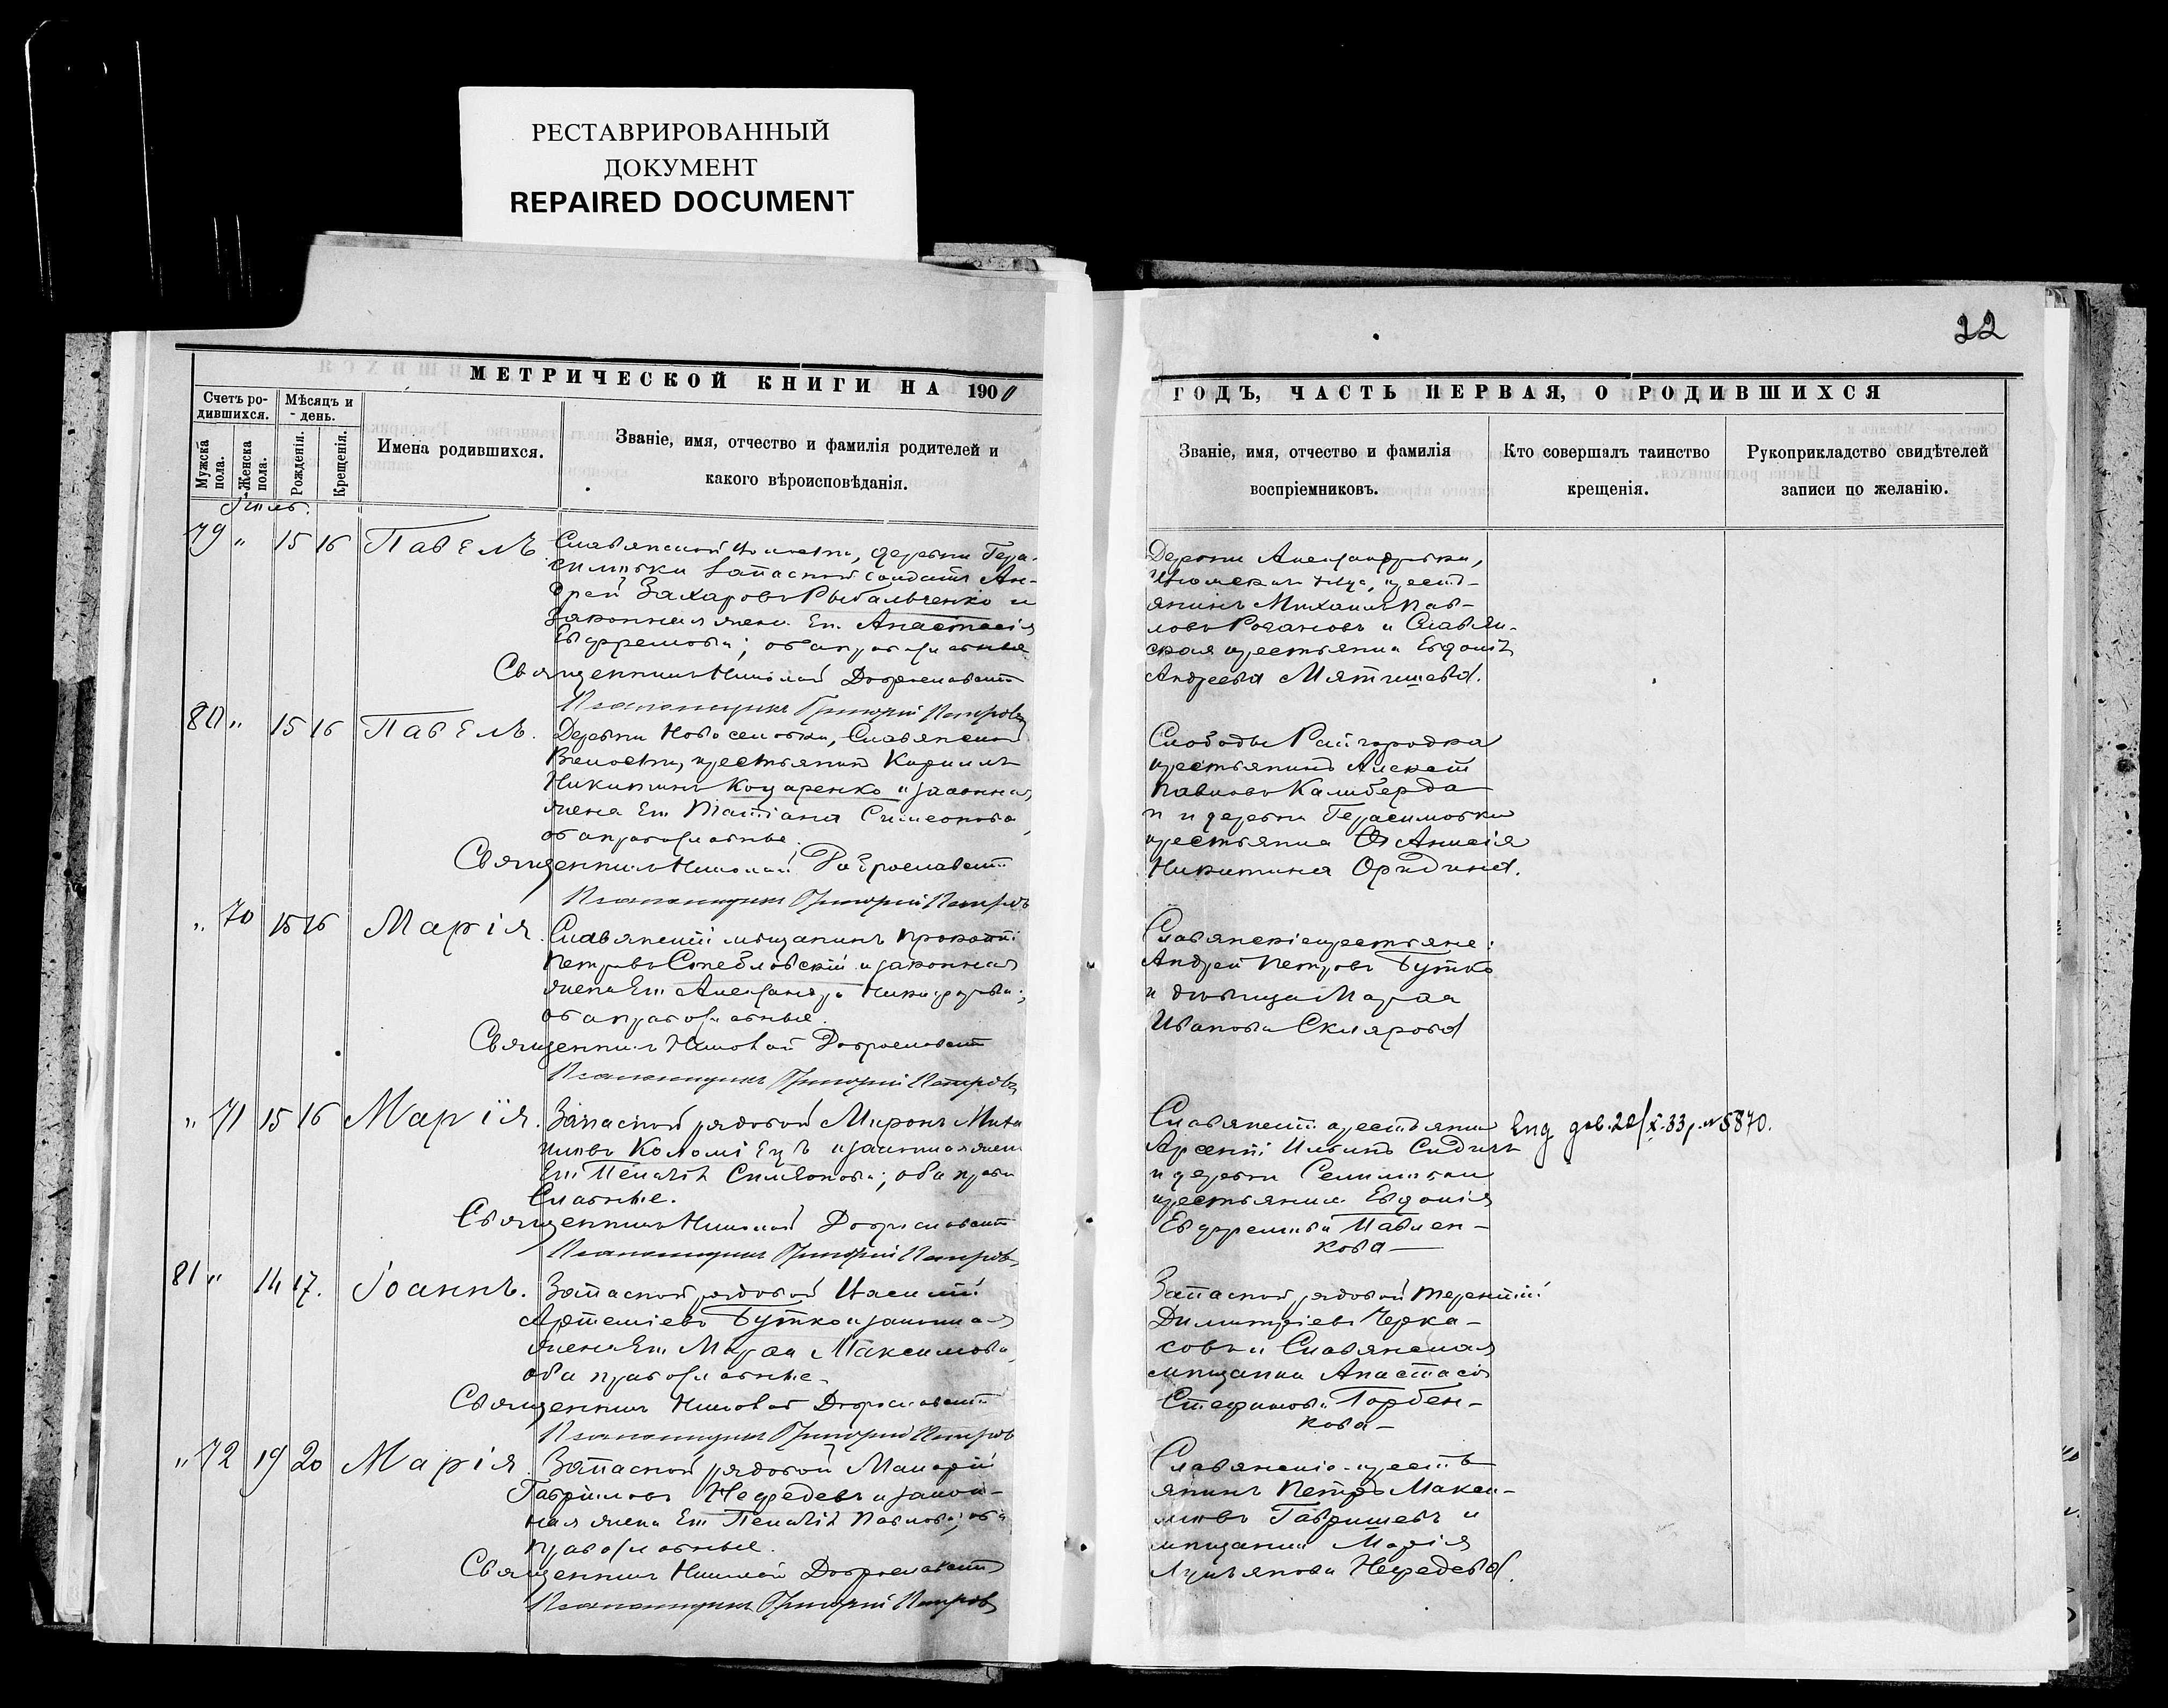 РЕСТАВРИРОВАННЫЙ
ДОКУМЕНТ
REPAIRED DOCUMENT
22
МЕТРИЧЕСКОЙ КНИГИ НА 1900
Счетъ ро-
дившихся.
Мѣсяцъ и
день.
Мужска
пола.
Женска
пола.
Рожденія.
Крещенія.
Имена родившихся.
Званіе, имя, отчество и фамилія родителей и
какого вѣроисповѣданія.
79 " 15 16 Павелъ
Славянской волости, деревни Гера-
симовки запасной солдатъ Ан-
дрей Захаровъ Рыбальченко и
законная жена его Анастасія
Евфремова; оба православные
Священникъ Николай Доброславскій
Псаломщикъ Григорій Петровъ
80 " 15 16 Павелъ.
Деревни Новоселовки, Славянской
Волости, крестьянинъ Кириллъ
Никитинъ Коцаренко и законная
жена его Татіана Симеонова,
оба православные.
Священникъ Николай Доброславскій
Псаломщикъ Григорій Петровъ
" 70 15 16 Марія.
Славянскій мѣщанинъ Прокопій
Петровъ Стебловскій и законная
жена его Александра Никифорова;
оба православные.
Священникъ Николай Доброславскій
Псаломщикъ Григорій Петровъ
" 71 15 16 Марія.
Запасной рядовой Миронъ
Коломіецъ и законная жена
его Пелагія Симеонова; оба право
славные.
Священникъ Николай Доброславскій
Псаломщикъ Григорій Петровъ
81 " 14 17. Іоаннъ.
Запасной рядовой Василій
Артеміевъ Бутко и законная
жена его Марѳа Максимова,
оба православные.
Священникъ Николай Доброславскій
Псаломщикъ Григорій Петровъ
" 72 19 20 Марія.
Запасной рядовой Макарій
Гавриловъ Нефедевъ и закон-
ная жена его Пелагія Павлова; оба
православные.
Священникъ Николай Доброславскій
Псаломщикъ Григорій Петровъ
ГОДЪ, ЧАСТЬ ПЕРВАЯ, О РОДИВШИХСЯ
Званіе, имя, отчество и фамилія
воспріемниковъ.
Кто совершалъ таинство
крещенія.
Рукоприкладство свидѣтелей
записи по желанію.
Деревни Александровки,
Изюмскаго крест-
янинъ Михаилъ Пав-
ловъ Рогановъ и Славян-
ская крестьянка Евдокія
Андреева Мятишева.
Слободы Райгородка
крестьянинъ Алексій
Павловъ Калиберда
и деревни Герасимовки
крестьянка Анисія
Никитина Оридина.
Славянскіе крестьяне:
Андрей Петровъ Бутко
и дѣвица Марѳа
Иванова Склярова
Славянскій крестьянинъ
Арсеній Ильинъ Сидичъ
и деревни
крестьянка Евдокія
Евфремова Павлен-
кова
дов. 20/X-33 р. № 5870.
Запасной рядовой Терентій
Димитріевъ Черка-
совъ и Славянская
мѣщанка Анастасія
Стефанова Горбен-
кова
Славянскіе крестъ
янинъ Петръ Макси-
мовъ Гавришевъ и
мѣщанка Марія
Лукьянова Нефедева.